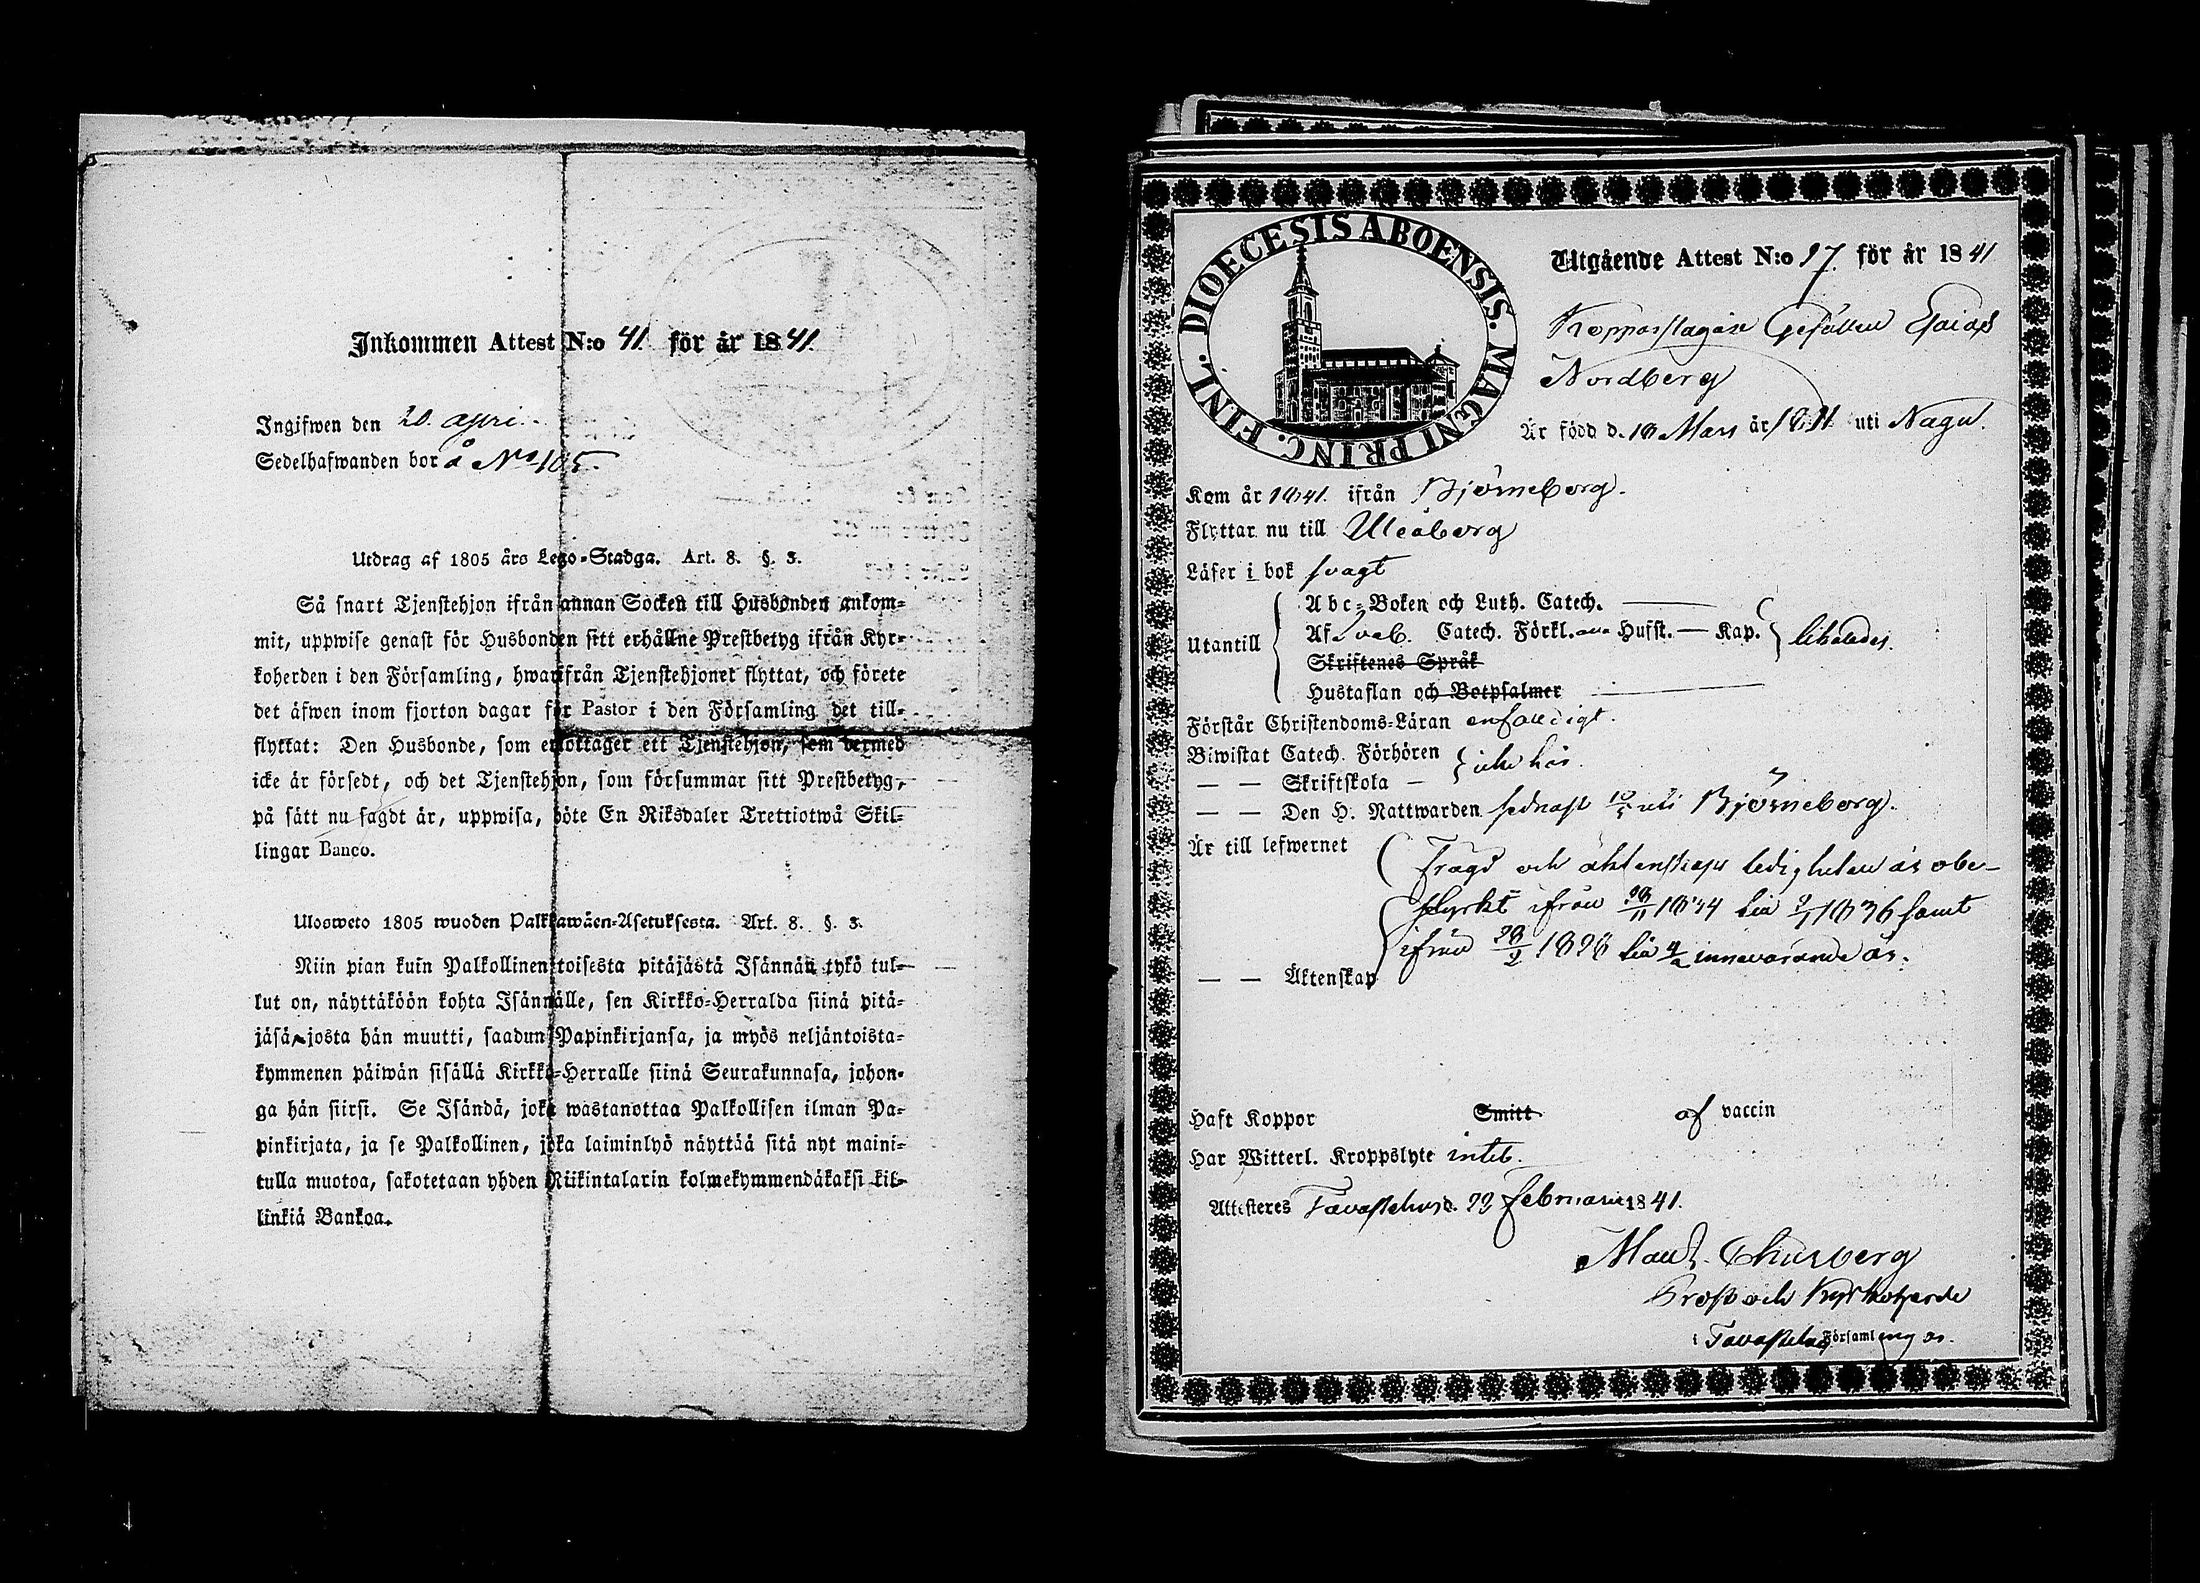 Inkommen Attest N:o 41. för år 1841.
Ingifwen den 20. apri.
Sedelhafwanden bor å No 105.
Utdrag af 1805 års Lego-Stadga. Art. 8. §. 3.
Så snart Tjenstehjon ifrån annan Socken till Husbonden ankom-
mit, uppwise genast för Husbonden sitt erhållne Prestbetyg ifrån Kyr-
koherden i den Församling, hwarifrån Tjenstehjonet flyttat, och förete
det äfwen inom fjorton dagar för Pastor i den Församling det till-
flyttat: Den Husbonde, som emottager ett Tjenstehjon, som dermed
icke är försedt, och det Tjenstehjon, som försummar sitt Prestbetyg,
på sätt nu sagdt är, uppwisa, böte En Riksdaler Trettiotwå Skil-
lingar Banco.
Ulosweto 1805 wuoden Palkkawäen-Asetuksesta. Art. 8. §. 3.
Niin pian kuin Palkollinen toisesta pitäjästä Isännän tykö tul-
lut on, näyttäköön kohta Isännälle, sen Kirkko-Herralda siinä pitä-
jäsä, josta hän muutti, saadun Papinkirjansa, ja myös neljäntoista-
kymmenen päiwän sisällä Kirkko-Herralle siinä Seurakunnasa, johon-
ga hän siirsi. Se Isändä, joka wastanottaa Palkollisen ilman Pa-
pinkirjata, ja se Palkollinen, joka laiminlyö näyttää sitä nyt maini-
tulla muotoa, sakotetaan yhden Riikintalarin kolmekymmendäkaksi kil-
linkiä Bankoa.
DIOECESIS ABOENSIS. MAGNI PRINC. FINL.
Utgående Attest N:o 27. för år 1841
Kopparslagare Gesällen Esaias
Nordberg
Är född d. 18 Mars år 1811 uti Nagu.
Kom år 1841. ifrån Björneborg.
Flyttar nu till Uleåborg
Läser i bok svagt
Utantill
Abc-Boken och Luth. Catech.
Af Sveb. Catech. Förkl. Husst. — Kap.
Skriftenes Språk
Hustaflan och Botpsalmer
Förstår Christendoms-Läran enfaldigt.
Biwistat Catech. Förhören
icke här.
— — Skriftskola —
— — Den H. Nattwarden sednast uti Björneborg.
Är till lefwernet
Frägd och äktenskaps ledigheten är obe-
styrkt ifrån 1834 till 1836 samt
ifrån 1838 till innevarande år.
— — Äktenskap
Haft Koppor Smitt af vaccin
Har Witterl. Kroppslyte intet.
Attesteres Tavastehus d. 22 februarii 1841.
Prost och Kyrkoherde
i Tavastehus Församling ar.